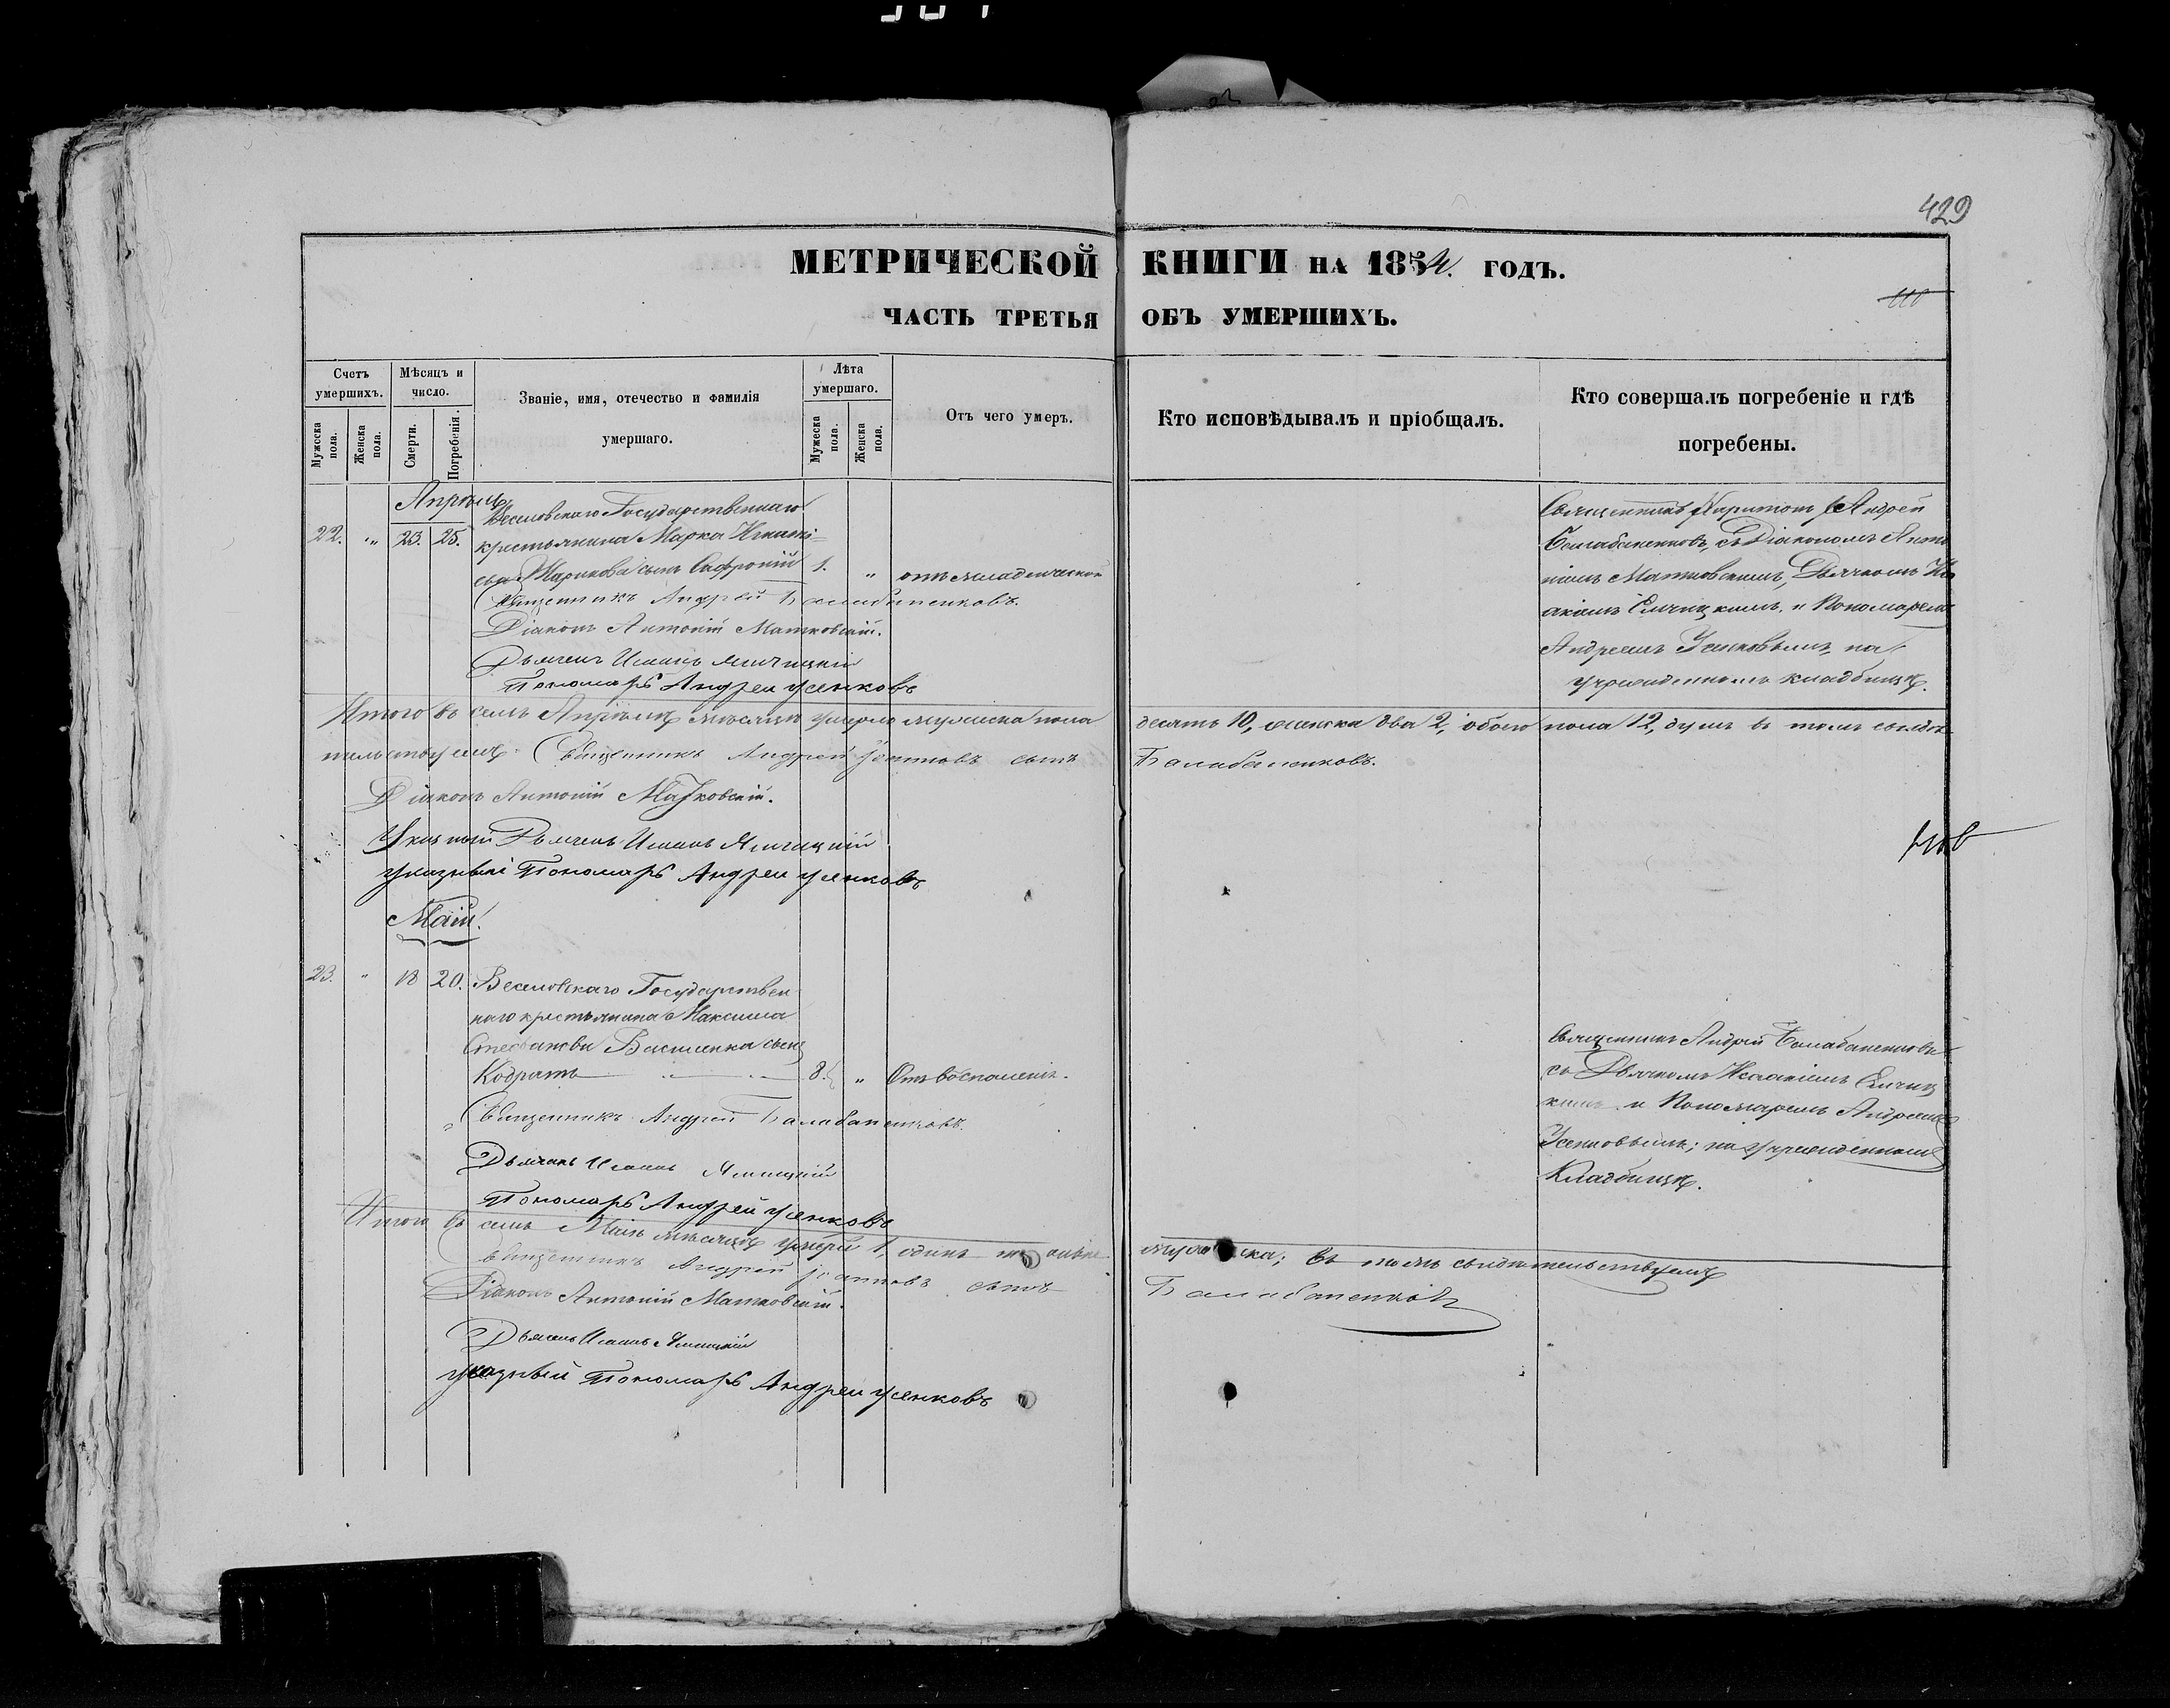 429
МЕТРИЧЕСКОЙ КНИГИ НА 1854. ГОДЪ.
ЧАСТЬ ТРЕТЬЯ ОБЪ УМЕРШИХЪ.
Счетъ умершихъ.
Мужеска пола.
Женска пола.
Мѣсяцъ и число.
Смерти.
Погребенія.
Званіе, имя, отечество и фамилія умершаго.
Лѣта умершаго.
Мужеска пола.
Женска пола.
Отъ чего умеръ.
Кто исповѣдывалъ и пріобщалъ.
Кто совершалъ погребеніе и гдѣ погребены.
Апрѣль
22. " 23. 25.
Веселовскаго Государственнаго
крестьянина Марка Игнаті=
ева сынъ Сафроній 1. " отъ младенческой
Священникъ Андрей Балабаненковъ.
Діаконъ Антоній Матковскій.
Дьячекъ Исаакъ
Пономарь Андрей Усенковъ
Священникъ Андрей
Балабаненковъ, съ Діакономъ Анто
ніемъ Матковскимъ, Дьячкомъ Иса
акіемъ и Пономаремъ
Андреемъ Усенковымъ, на
учрежденномъ кладбищѣ.
Итого въ семъ Апрѣлѣ мѣсяцѣ умерло мужеска пола десять 10, женска два 2, обоего пола 12, душъ въ томъ свидѣ
тельствуемъ Священникъ Андрей Іоанновъ сынъ Балабаненковъ.
Діаконъ Антоній Матковскій.
Указный Дьячекъ Исаакъ
указный Пономарь Андрей Усенковъ
Маій
23. " 18 20. Веселовскаго Государствен
наго крестьянина Максима
Стефанова Василенка сынъ
Кодратъ 8. " Отъ воспаленія.
Священникъ Андрей Балабаненковъ.
Дьячекъ Исаакъ
Пономарь Андрей Усенковъ
Священникъ Андрей Балабаненковъ
съ Дьячкомъ Исаакіемъ
кимъ и Пономаремъ Андреемъ
Усенковымъ; на учрежденномъ
Кладбищѣ.
Итого въ семъ Маіѣ мѣсяцѣ умеръ 1, одинъ мужеска; въ томъ свидѣтельствуемъ
Священникъ Андрей Іоанновъ сынъ Балабаненковъ
Діаконъ Антоній Матковскій.
Дьячекъ Исаакъ
указный Пономарь Андрей Усенковъ